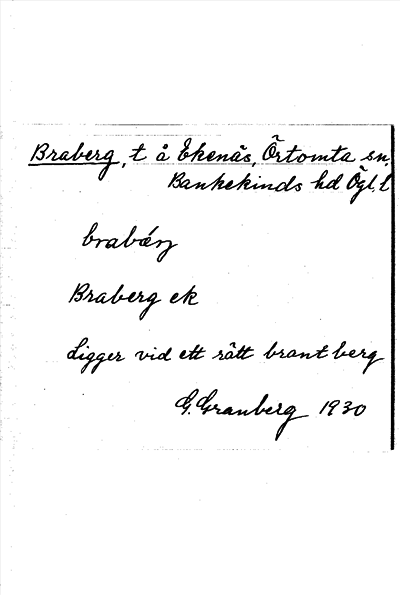 Braberg, t å Ekenäs, Örtomta sn,
Bankekinds hd Ögl. l
Braberg ek
Ligger vid ett rätt brant berg
G. Granberg 1930